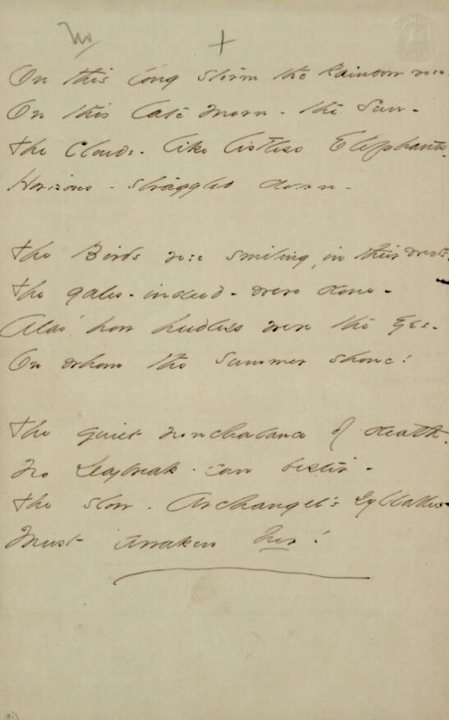 No
+
On this long storm the Rainbow rose -
On this late morn - the Sun -
The Clouds - like listless Elephants -
Horizons - straggled down -
The Birds rose smiling, in their nests -
The gales - indeed - were done -
Alas! how heedless were the eyes -
On whom the summer shone!
The quiet nonchalance of death -
No Daybreak - can bestir -
The slow - Archangel's syllables
Must awaken her!